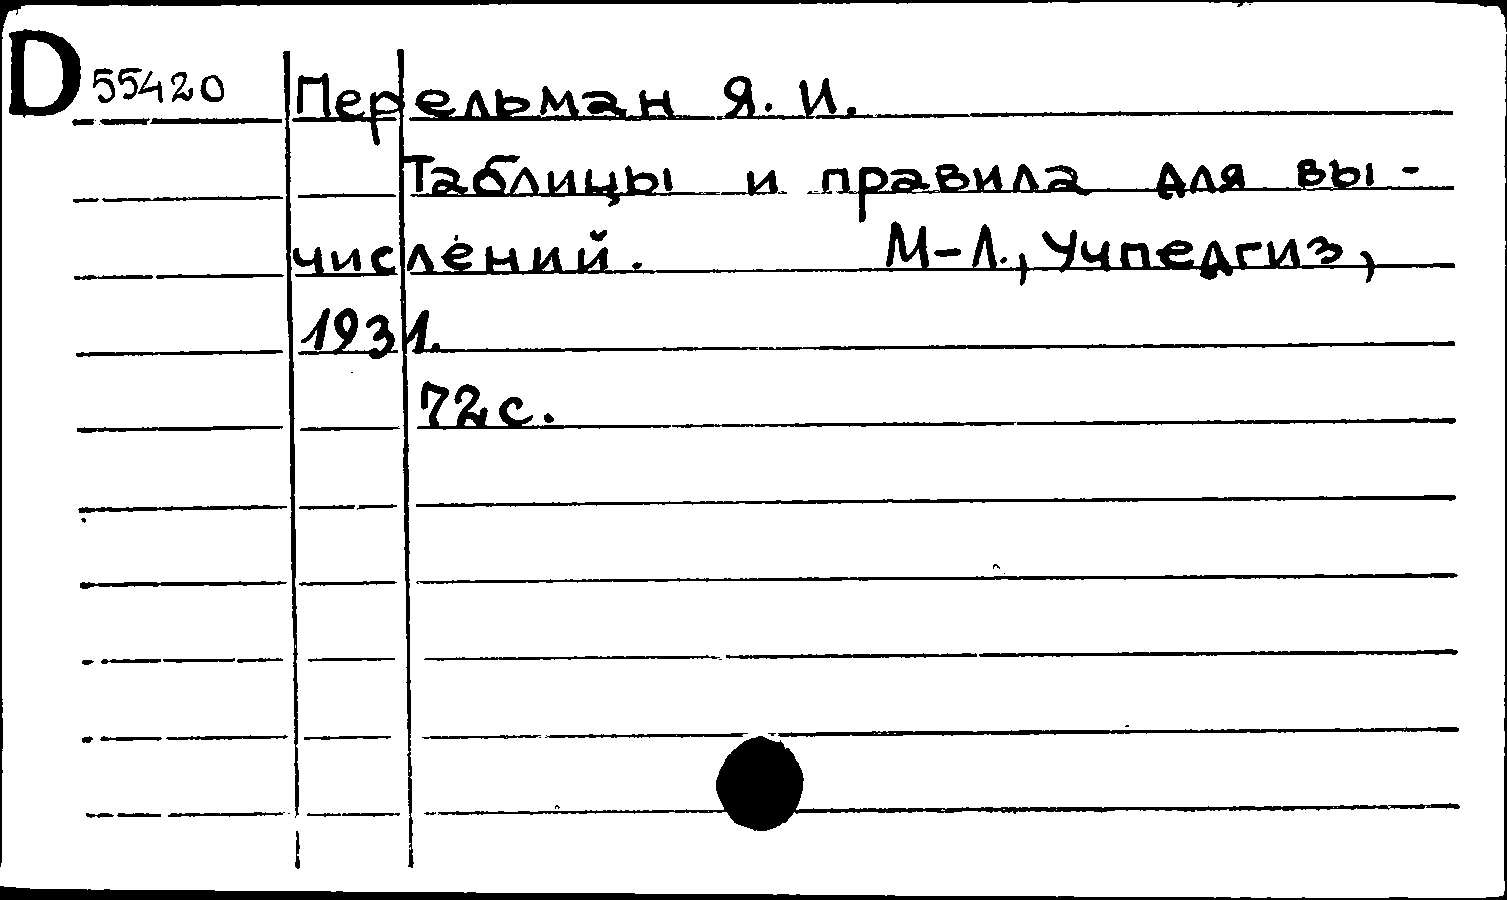 D 55420 Перельман Я. И.
Таблицы и правила для вы-
числений. М-Л., Учпедгиз,
1931.
72 с.